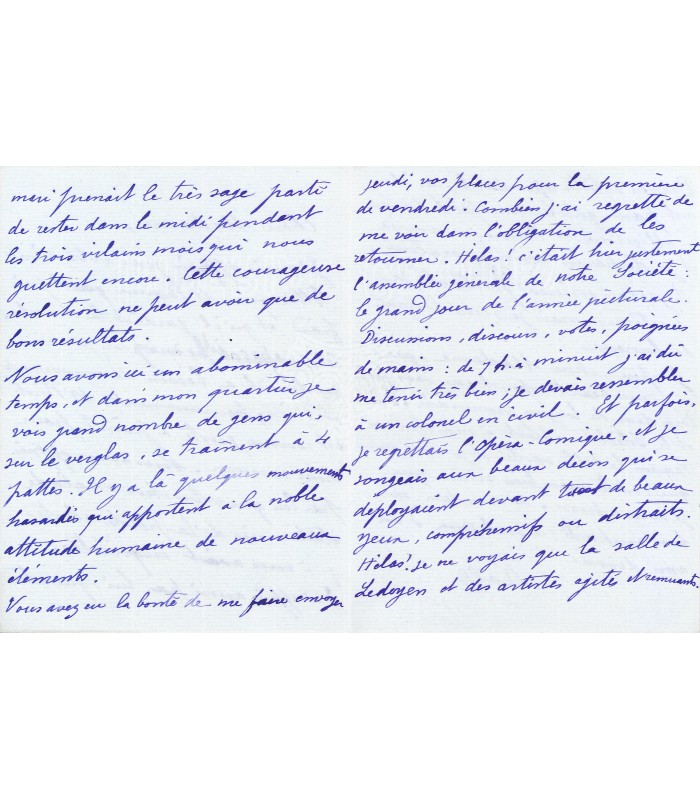 mari prenait le très sage parti
de rester dans le midi pendant
les trois vilains mois qui nous
guettent encore. Cette courageuse
résolution ne peut avoir que de
bons résultats.
Nous avons ici un abominable
temps, et dans mon quartier je
vois grand nombre de gens qui,
sur le verglas, se traînent à 4
pattes. Il y a là quelques mouvements
hasardés qui apportent à la noble
attitude humaine de nouveaux
éléments.
Vous avez eu la bonté de me faire envoyer
jeudi, vos places pour la première
de vendredi. Combien j'ai regretté de
me voir dans l'obligation de les
retourner. Hélas! c'était hier justement
l'assemblée générale de notre Société:
le grand jour de l'année picturale.
Discussions, discours, votes, poignées
de mains: de 7 h. à minuit j'ai dû
me tenir très bien; je devais ressembler
à un colonel en civil. Et parfois,
je regrettais l'Opéra-Comique, et je
songeais aux beaux décors qui se
déployaient devant de beaux
yeux, compréhensifs ou distraits.
Hélas! je ne voyais que la salle de
Ledoyen et des artistes agités et remuants.